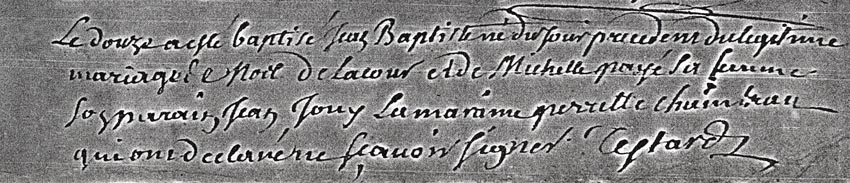 Le douze a esté baptisé Jean Baptiste né du jour precedent du legitime
mariage de Noel Delacour et de Michelle payé sa femme
son parain Jean Jouy La maraine perrette
qui ont declaré ne sçavoir signer. Testard